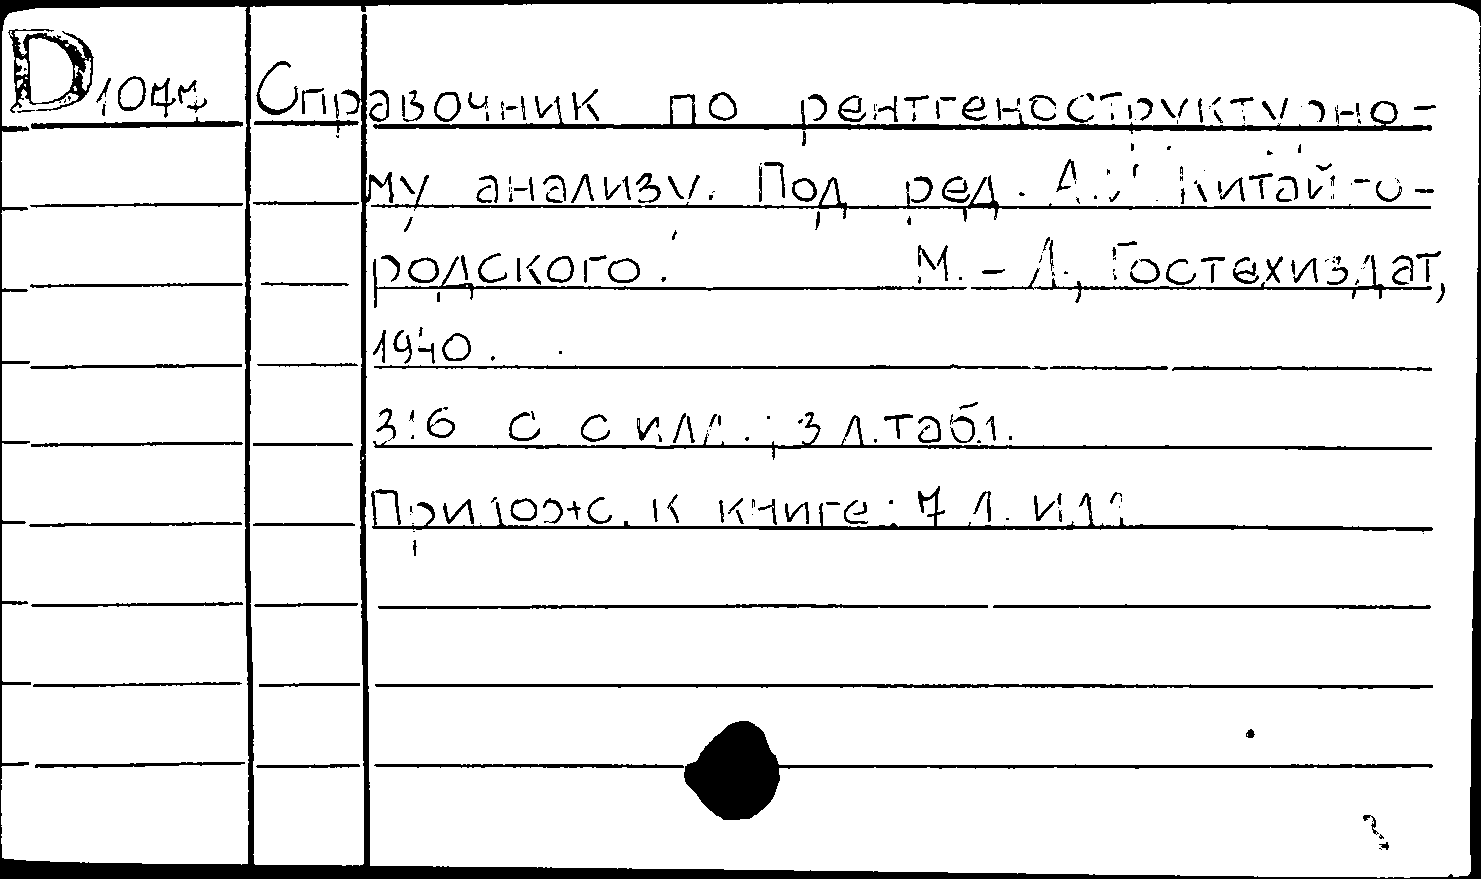 D1077 Справочник по рентгеноструктурно-
му анализу. Под ред. А.И. Китайго-
родского. М.-Л., Гостехиздат,
1940.
с с илл.; 3 л. табл.
Прилож. к книге: 7 л. илл